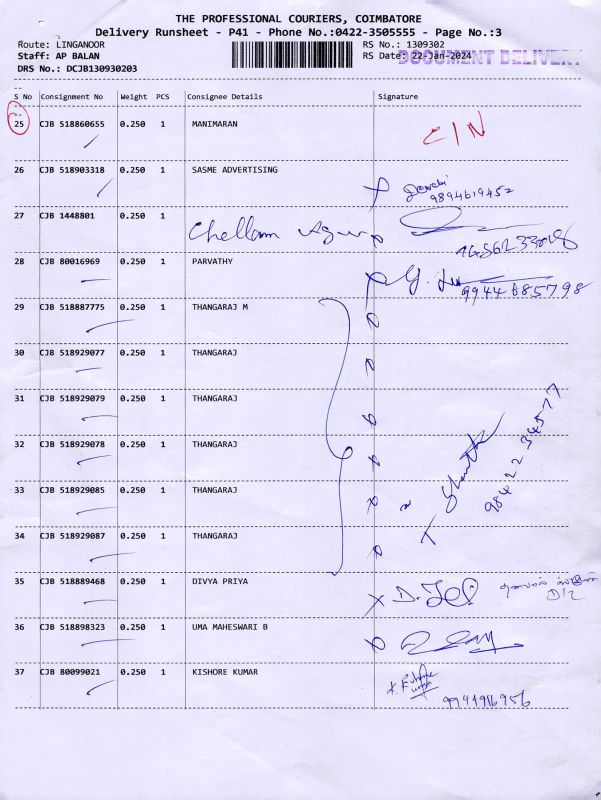 THE PROFESSIONAL COURIERS, COIMBATORE
Delivery Runsheet - P41 - Phone No.:0422-3505555 - Page No.:3
Route: LINGANOOR RS No.: 1309302
Staff: AP BALAN RS Date: 22-Jan-2024
DOCUMENT DELIVERY
DRS No.: DCJB130930203
S No Consignment No Weight PCS Consignee Details Signature
25 CJB 518860655 0.250 1 MANIMARAN
C/N
26 CJB 518903318 0.250 1 SASME ADVERTISING
9894619452
27 CJB 1448801 0.250 1
Chellam
28 CJB 80016969 0.250 1 PARVATHY
9944685798
29 CJB 518887775 0.250 1 THANGARAJ M
30 CJB 518929077 0.250 1 THANGARAJ
31 CJB 518929079 0.250 1 THANGARAJ
32 CJB 518929078 0.250 1 THANGARAJ
9842234577
33 CJB 518929085 0.250 1 THANGARAJ
34 CJB 518929087 0.250 1 THANGARAJ
35 CJB 518889468 0.250 1 DIVYA PRIYA
36 CJB 518898323 0.250 1 UMA MAHESWARI B
37 CJB 80099021 0.250 1 KISHORE KUMAR
9941916956